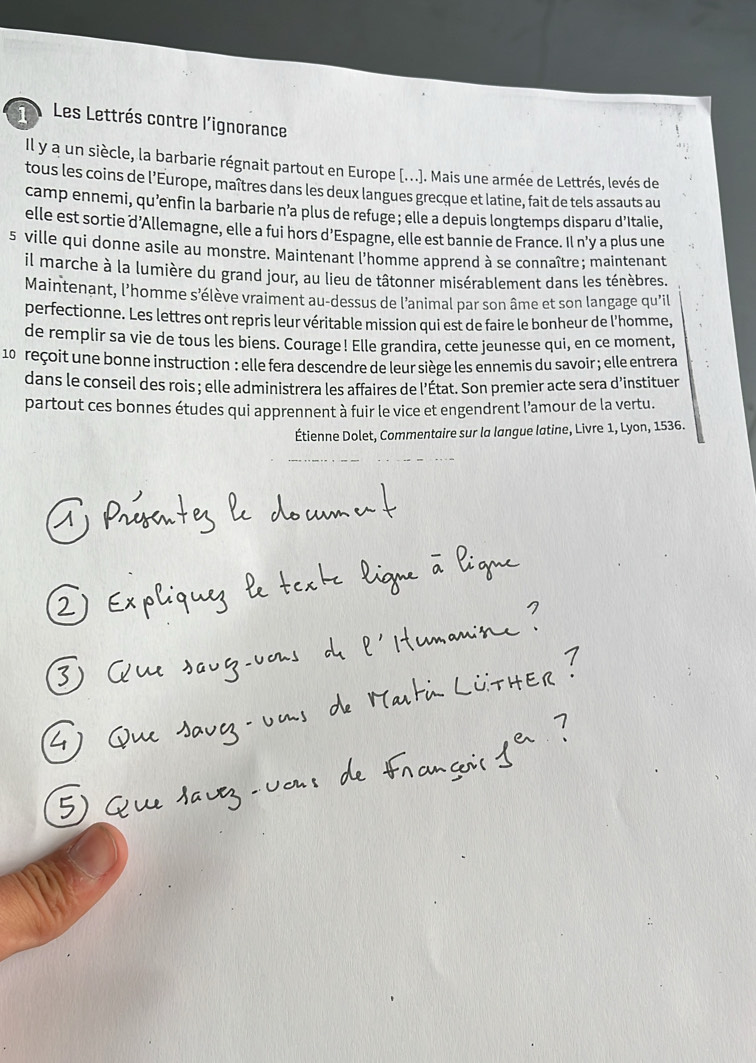 1 Les Lettrés contre l'ignorance
Il y a un siècle, la barbarie régnait partout en Europe [...]. Mais une armée de Lettrés, levés de
tous les coins de l'Europe, maîtres dans les deux langues grecque et latine, fait de tels assauts au
camp ennemi, qu'enfin la barbarie n'a plus de refuge ; elle a depuis longtemps disparu d'Italie,
elle est sortie d'Allemagne, elle a fui hors d'Espagne, elle est bannie de France. Il n'y a plus une
5 ville qui donne asile au monstre. Maintenant l'homme apprend à se connaître ; maintenant
il marche à la lumière du grand jour, au lieu de tâtonner misérablement dans les ténèbres.
Maintenant, l'homme s'élève vraiment au-dessus de l'animal par son âme et son langage qu'il
perfectionne. Les lettres ont repris leur véritable mission qui est de faire le bonheur de l'homme,
de remplir sa vie de tous les biens. Courage ! Elle grandira, cette jeunesse qui, en ce moment,
10 reçoit une bonne instruction : elle fera descendre de leur siège les ennemis du savoir ; elle entrera
dans le conseil des rois ; elle administrera les affaires de l'État. Son premier acte sera d'instituer
partout ces bonnes études qui apprennent à fuir le vice et engendrent l'amour de la vertu.
Étienne Dolet, Commentaire sur la langue latine, Livre 1, Lyon, 1536.
1) Présentez le document
2) Expliquez le texte ligne à ligne
3) Que savez-vous de l'Humanisme ?
4) Que savez-vous de Martin LÜTHER ?
5) Que savez-vous de François 1er ?